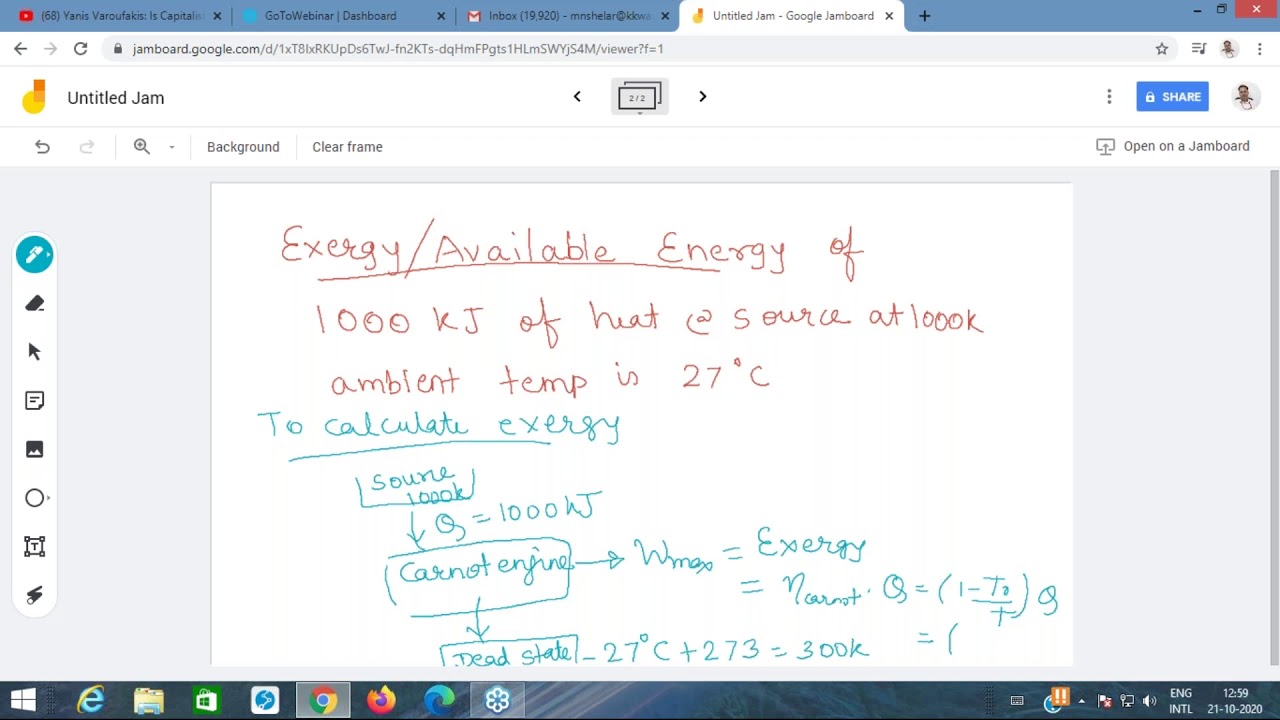 (68) Yanis Varoufakis: Is Capitalis
GoToWebinar | Dashboard
Inbox (19,920) - mnshelar@kkwa
Untitled Jam - Google Jamboard
jamboard.google.com/d/1xT8IxRKUpDs6TwJ-fn2KTs-dqHmFPgts1HLmSWYjS4M/viewer?f=1
Untitled Jam
2 / 2
SHARE
Background
Clear frame
Open on a Jamboard
Exergy/Available Energy of
1000 kJ of heat @ source at 1000k
ambient temp is 27°C
To calculate exergy
Source
1000k
Q = 1000 kJ
Carnot engine → Wmax = Exergy
= ηcarnot · Q = (1 - T0/T) Q
Dead state - 27°C + 273 = 300k = (
ENG
INTL
12:59
21-10-2020